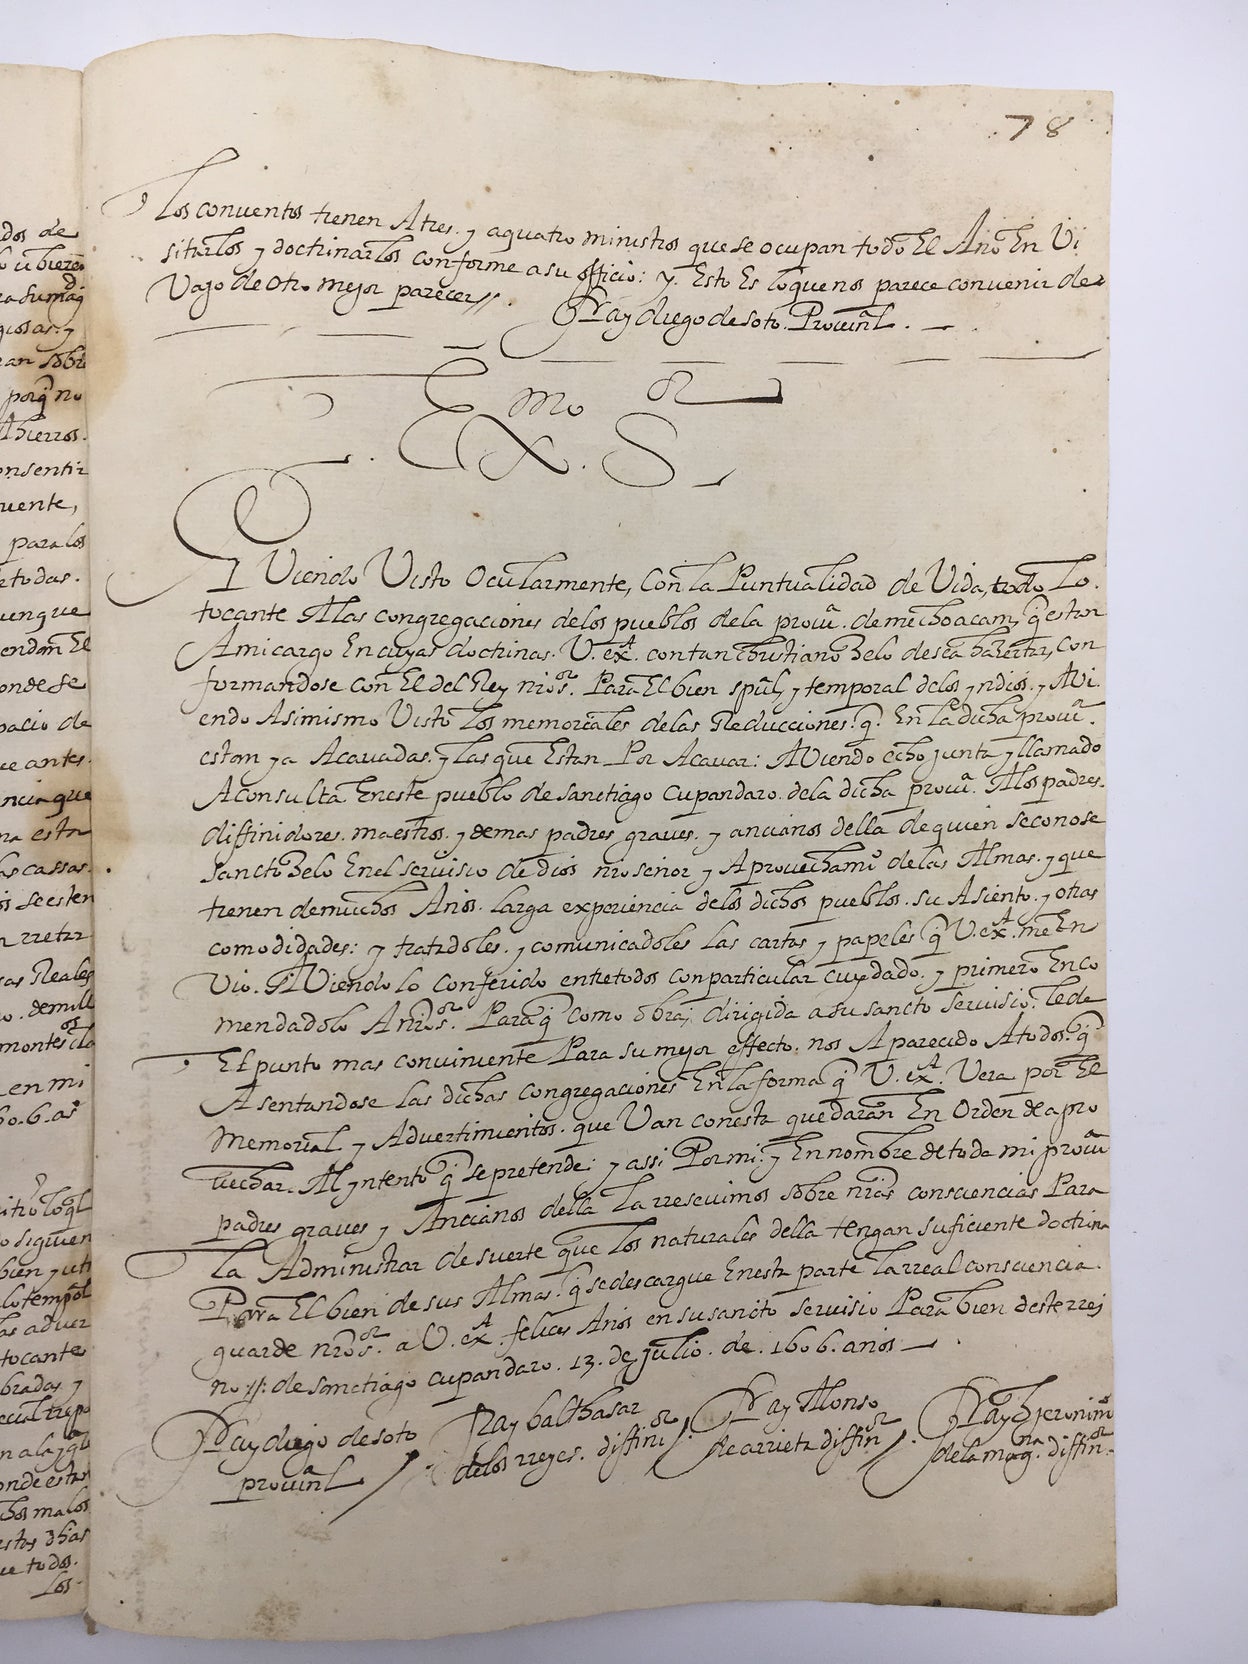 78
los conuentos tienen A tres. y aquatro ministros que se ocupan todo El Año En Vi
sitarlos y doctrinarlos conforme a su officio: y. Esto Es lo que nos parece convenir de
Vajo de otro mejor parecer//.
fray diego de soto. Prouinl.
Exmo. Sor
AViendo Visto Ocularmente, Con la Puntualidad de Vida, todo Lo.
tocante A llas congregaciones delos pueblos dela prouia. de mechoacam, q̃ estan
A mi cargo En cuyas doctrinas. V. exA. con tan christiano Zelo desea haZertar, Con
formandose con El del Rey nro sr. Para El bien spũl, y temporal delos yndios. y AVi
endo Asimismo Visto los memoriales delas Reducciones. q̃. En la dicha prouia.
estan ya Acauadas. y las que Estan Por Acauar: AViendo echo junta y llamado
A consulta En este pueblo de sanctiago cupandaro. dela dicha prouia. A los padres.
diffinidores. maestros. y demas padres graues. y ancianos della de quien se conose
sancto Zelo En el seruisio de dios nro señor y A prouechamio de las Almas. y que
tienen de muchos Años. larga experiencia delos dichos pueblos. su Asiento. y otras
comodidades: y tratadoles. y comunicadoles las cartas y papeles q̃ V. exA. me En
Vio. AViendolo conferido entretodos con particular cuydado. y primero Enco
mendadolo A nro sr. Para q̃ como obra, dirigida a su sancto seruisio. le de
El punto mas conviniente Para su mejor effecto. nos A parecido A todos. q̃
Asentandose las dichas congregaciones En la forma q̃ V. exA. Vera por El
Memorial y Advertimientos. que Van con esta quedaran En Orden de apro
uechar. Al yntento q̃ se pretende: y assi Por mi. y En nombre de toda mi prouia
padres graues y Ancianos della la rresceuimos sobre nras consciencias Para
la Administrar de suerte que los naturales della tengan suficiente doctrina
Para El bien de sus Almas. q̃ se descargue En esta parte la rreal consciencia.
guarde nro sr. a V. exA. felices Años en su sancto seruisio Para bien deste rrei
no //: de sanctiago cupandaro. 13. de julio. de. 1606. años
fray diego de soto
prouinl
fray balthasar
delos rreyes. diffinior
fray Alonso
de arrieta diffinor
fray hieronimo
dela magna. diffinor.